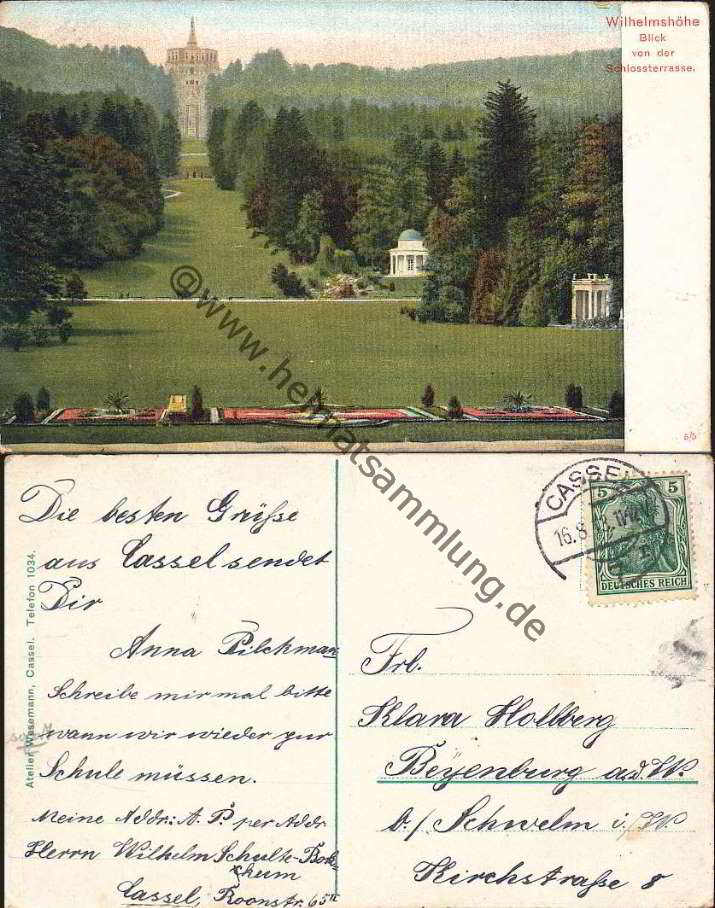 Wilhelmshöhe
Blick
von der
Schlossterrasse.
6/5
@www.heimatsammlung.de
Die besten Grüße
aus Cassel sendet
Dir
Anna Pilckman
Schreibe mir mal bitte
wann wir wieder zur
Schule müssen.
Meine Addr: A. P. per Addr
Herrn Wilhelm Schulte-
heim
Cassel, Roonstr. 65
Atelier Wesemann, Cassel. Telefon 1034.
CASSEL
16.8.
5 5
DEUTSCHES REICH
Frl.
Klara Hollberg
Beyenburg a.d.W.
b./ Schwelm i./W.
Kirchstraße 8